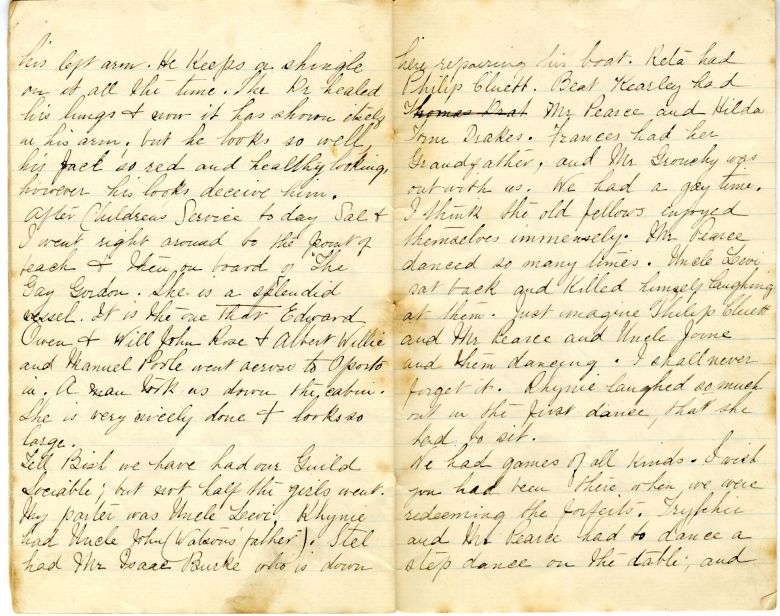 his left arm. He keeps a shingle
on it all the time. The Dr healed
his lungs & now it has shown itself
in his arm, but he looks so well,
his face so red and healthy looking,
however his looks deceive him.
After Childrens Service to day Sal &
I went right around to the point of
beach & then on board of "The
Gay Gordon. She is a splendid
vessel. It is the one that Edward
Owen & Will John Rose & Albert Willie
and Manuel Poole went across to Oporto
in. A man took us down the cabin.
She is very nicely done & looks so
large.
Tell Bish we have had our Guild
Sociable; but not half the girls went.
My parter was Uncle Levi. Rhynie
had Uncle John (Watsons father). Stel
had Mr Isaac Burke who is down
here repairing his boat. Reta had
Philip Cluett. Beat Kearley had
Thomas Drat Mr Pearce and Hilda
Tom Drakes. Frances had her
Grandfather, and Mr Grouchy was
out with us. We had a gay time.
I think the old fellows enjoyed
themselves immensely. Mr Pearce
danced so many times. Uncle Levi
sat back and killed himself laughing
at them. Just imagine Philip Cluett
and Mr Pearce and Uncle
and them dancing. I shall never
forget it. Rhynie laughed so much
out in the first dance, that she
had to sit.
We had games of all kinds. I wish
you had been there when we were
redeeming the forfeits.
and Mr Pearce had to dance a
step dance on the table; and